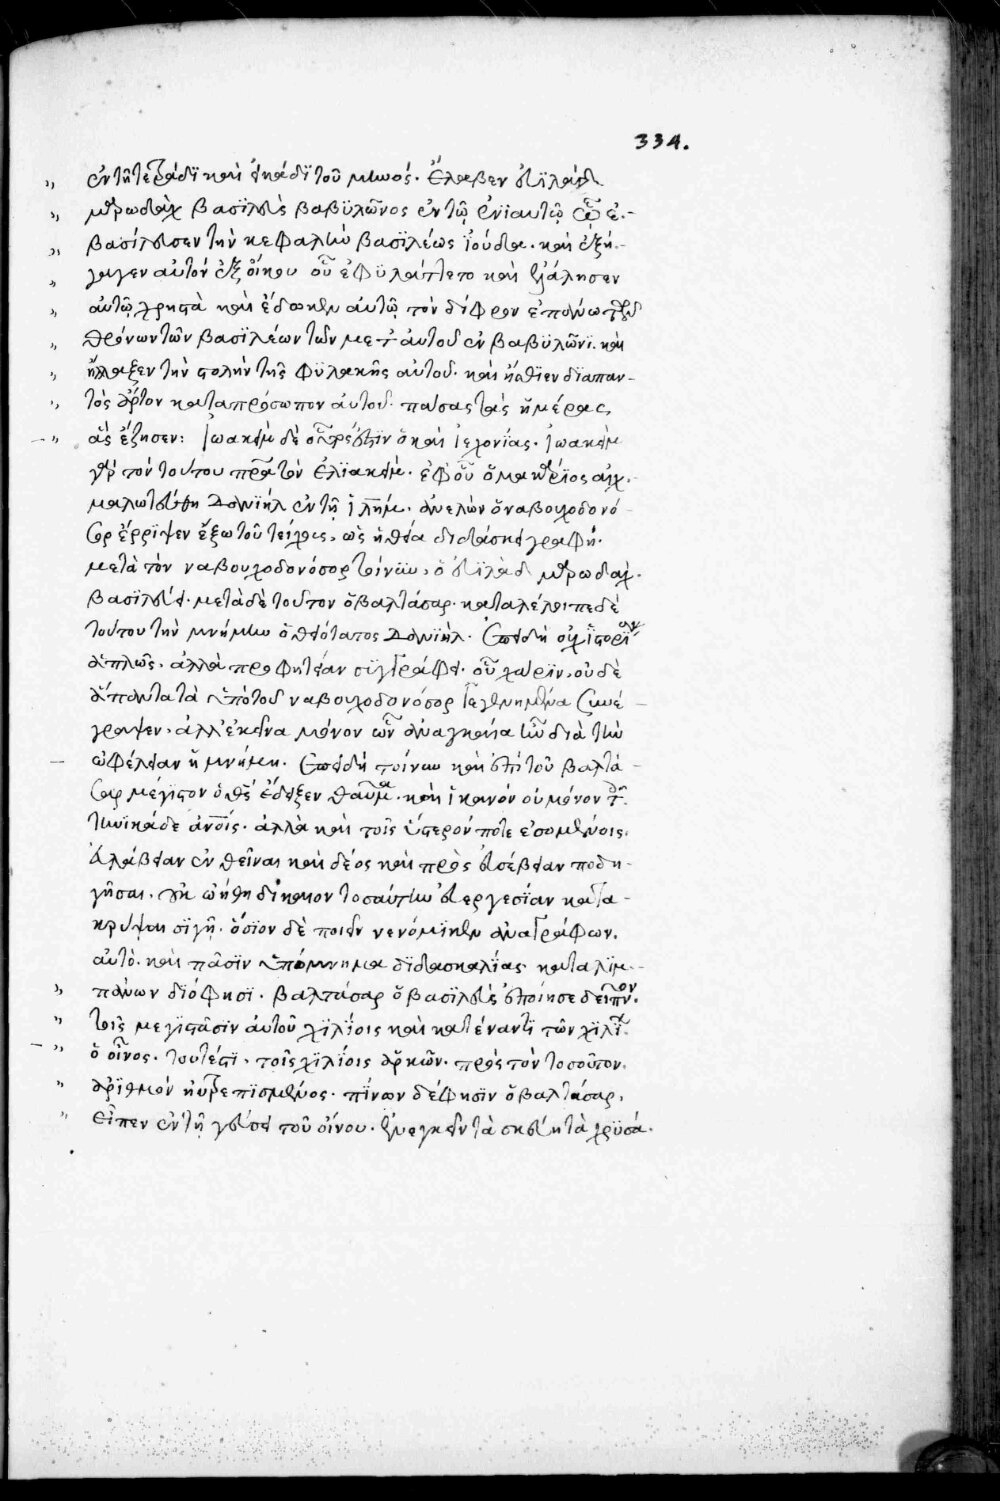 334.
ἐν τῇ τετράδϊ καὶ εἰκάδϊ τοῦ μηνός. ἔλαβεν εὐϊλὰδ
μερωδὰχ βασϊλεὺς βαβϋλῶνος ἐν τῷ ἐνϊαυτῷ ᾧ ἐ-
βασίλευσεν τὴν κεφαλὴν βασϊλέως ϊούδα. καὶ ἐξή-
γαγεν αὐτόν ἐξ οἴκου οὗ ἐφϋλάττετο καὶ ἐλάλησεν
αὐτῷ χρηστὰ καὶ ἔδωκεν αὐτῷ τὸν δίφρον ἐπάνω τῶν
θρόνων τῶν βασϊλέων τῶν μετ' αὐτοῦ ἐν βαβϋλῶνϊ. καὶ
ἤλλαξεν τὴν στολὴν τῆς φϋλακῆς αὐτοῦ. καὶ ἤσθϊεν δϊαπαν-
τὸς ἄρτον καταπρόσωπον αὐτοῦ. πάσας τὰς ἡμέρας,
ἃς ἔζησεν: ϊωακεὶμ δὲ οὗτος ἐστϊν ὁ καὶ ϊεχονίας. ϊωακεὶμ
γὰρ τὸν τούτου πρα τὸν ἐλϊακείμ. ἐφ' οὗ ὁ μακάρϊος αἰχ-
μαλωτεύθη δανϊὴλ ἐν τῇ ἱλήμ. ἀνελὼν ὁ ναβουχοδονό-
σορ ἔρρϊψεν ἔξω τοῦ τείχους, ὡς ἡ θεία διδάσκει γραφή.
μετὰ τὸν ναβουχοδονόσορ τοίνϋν, ὁ εὐϊλὰδ μερωδαχ.
βασϊλεύει. μετὰ δὲ τοῦτον ὁ βαλτάσαρ. καταλέλοιπε δὲ
τούτου τὴν μνήμην ὁ θειότατος δανϊήλ. ἐπειδὴ οὐχ ἱστορίαν
ἁπλῶς, ἀλλὰ προφητείαν συγγράφει. οὗ χάρϊν, οὐδὲ
ἅπαντα τὰ ὑπὸ τοῦ ναβουχοδονόσορ γεγενημένα συνέ-
γραψεν, ἀλλ' ἐκεῖνα μόνον ὧν ἀναγκαία ἦν διὰ τὴν
ὠφέλειαν ἡ μνήμη. ἐπειδὴ τοίνυν καὶ ἐπὶ τοῦ βαλτά-
σαρ μέγϊστον ὁ θς ἔδειξεν θαῦμα. καὶ ἱκανόν οὐ μόνον τοὺς
τηνικάδε ἀνοῖς. ἀλλὰ καὶ τοῖς ὕστερόν ποτε ἐσομένοις.
εὐλάβειαν ἐνθεῖναι καὶ δέος καὶ πρὸς εὐσέβειαν ποδη-
γῆσαι. οὐκ ᾠήθη δίκαιον τοσαύτην εὐεργεσίαν κατα-
κρύψαι σϊγῇ. ὅσϊον δὲ ποιεῖν νενόμϊκεν ἀναγράφων.
αὐτὸ. καὶ πᾶσϊν ὑπόμνημα δϊδασκαλίας καταλϊμ-
πάνων δϊό φησϊ. βαλτάσαρ ὁ βασϊλεὺς ἐποίησε δεῖπνον.
τοῖς μεγϊστᾶσϊν αὐτοῦ χϊλίοις καὶ κατέναντϊ τῶν χϊλίων
ὁ οἶνος. τουτέστϊ. τοῖς χϊλίοις ἀρκῶν. πρὸς τὸν τοσοῦτον.
ἀρϊθμόν ηὐτρεπϊσμένος. πίνων δέ φησϊν ὁ βαλτάσαρ.
εἶπεν ἐν τῇ γεύσει τοῦ οἴνου. ἐνεγκεῖν τὰ σκεύη τὰ χρϋσᾶ.